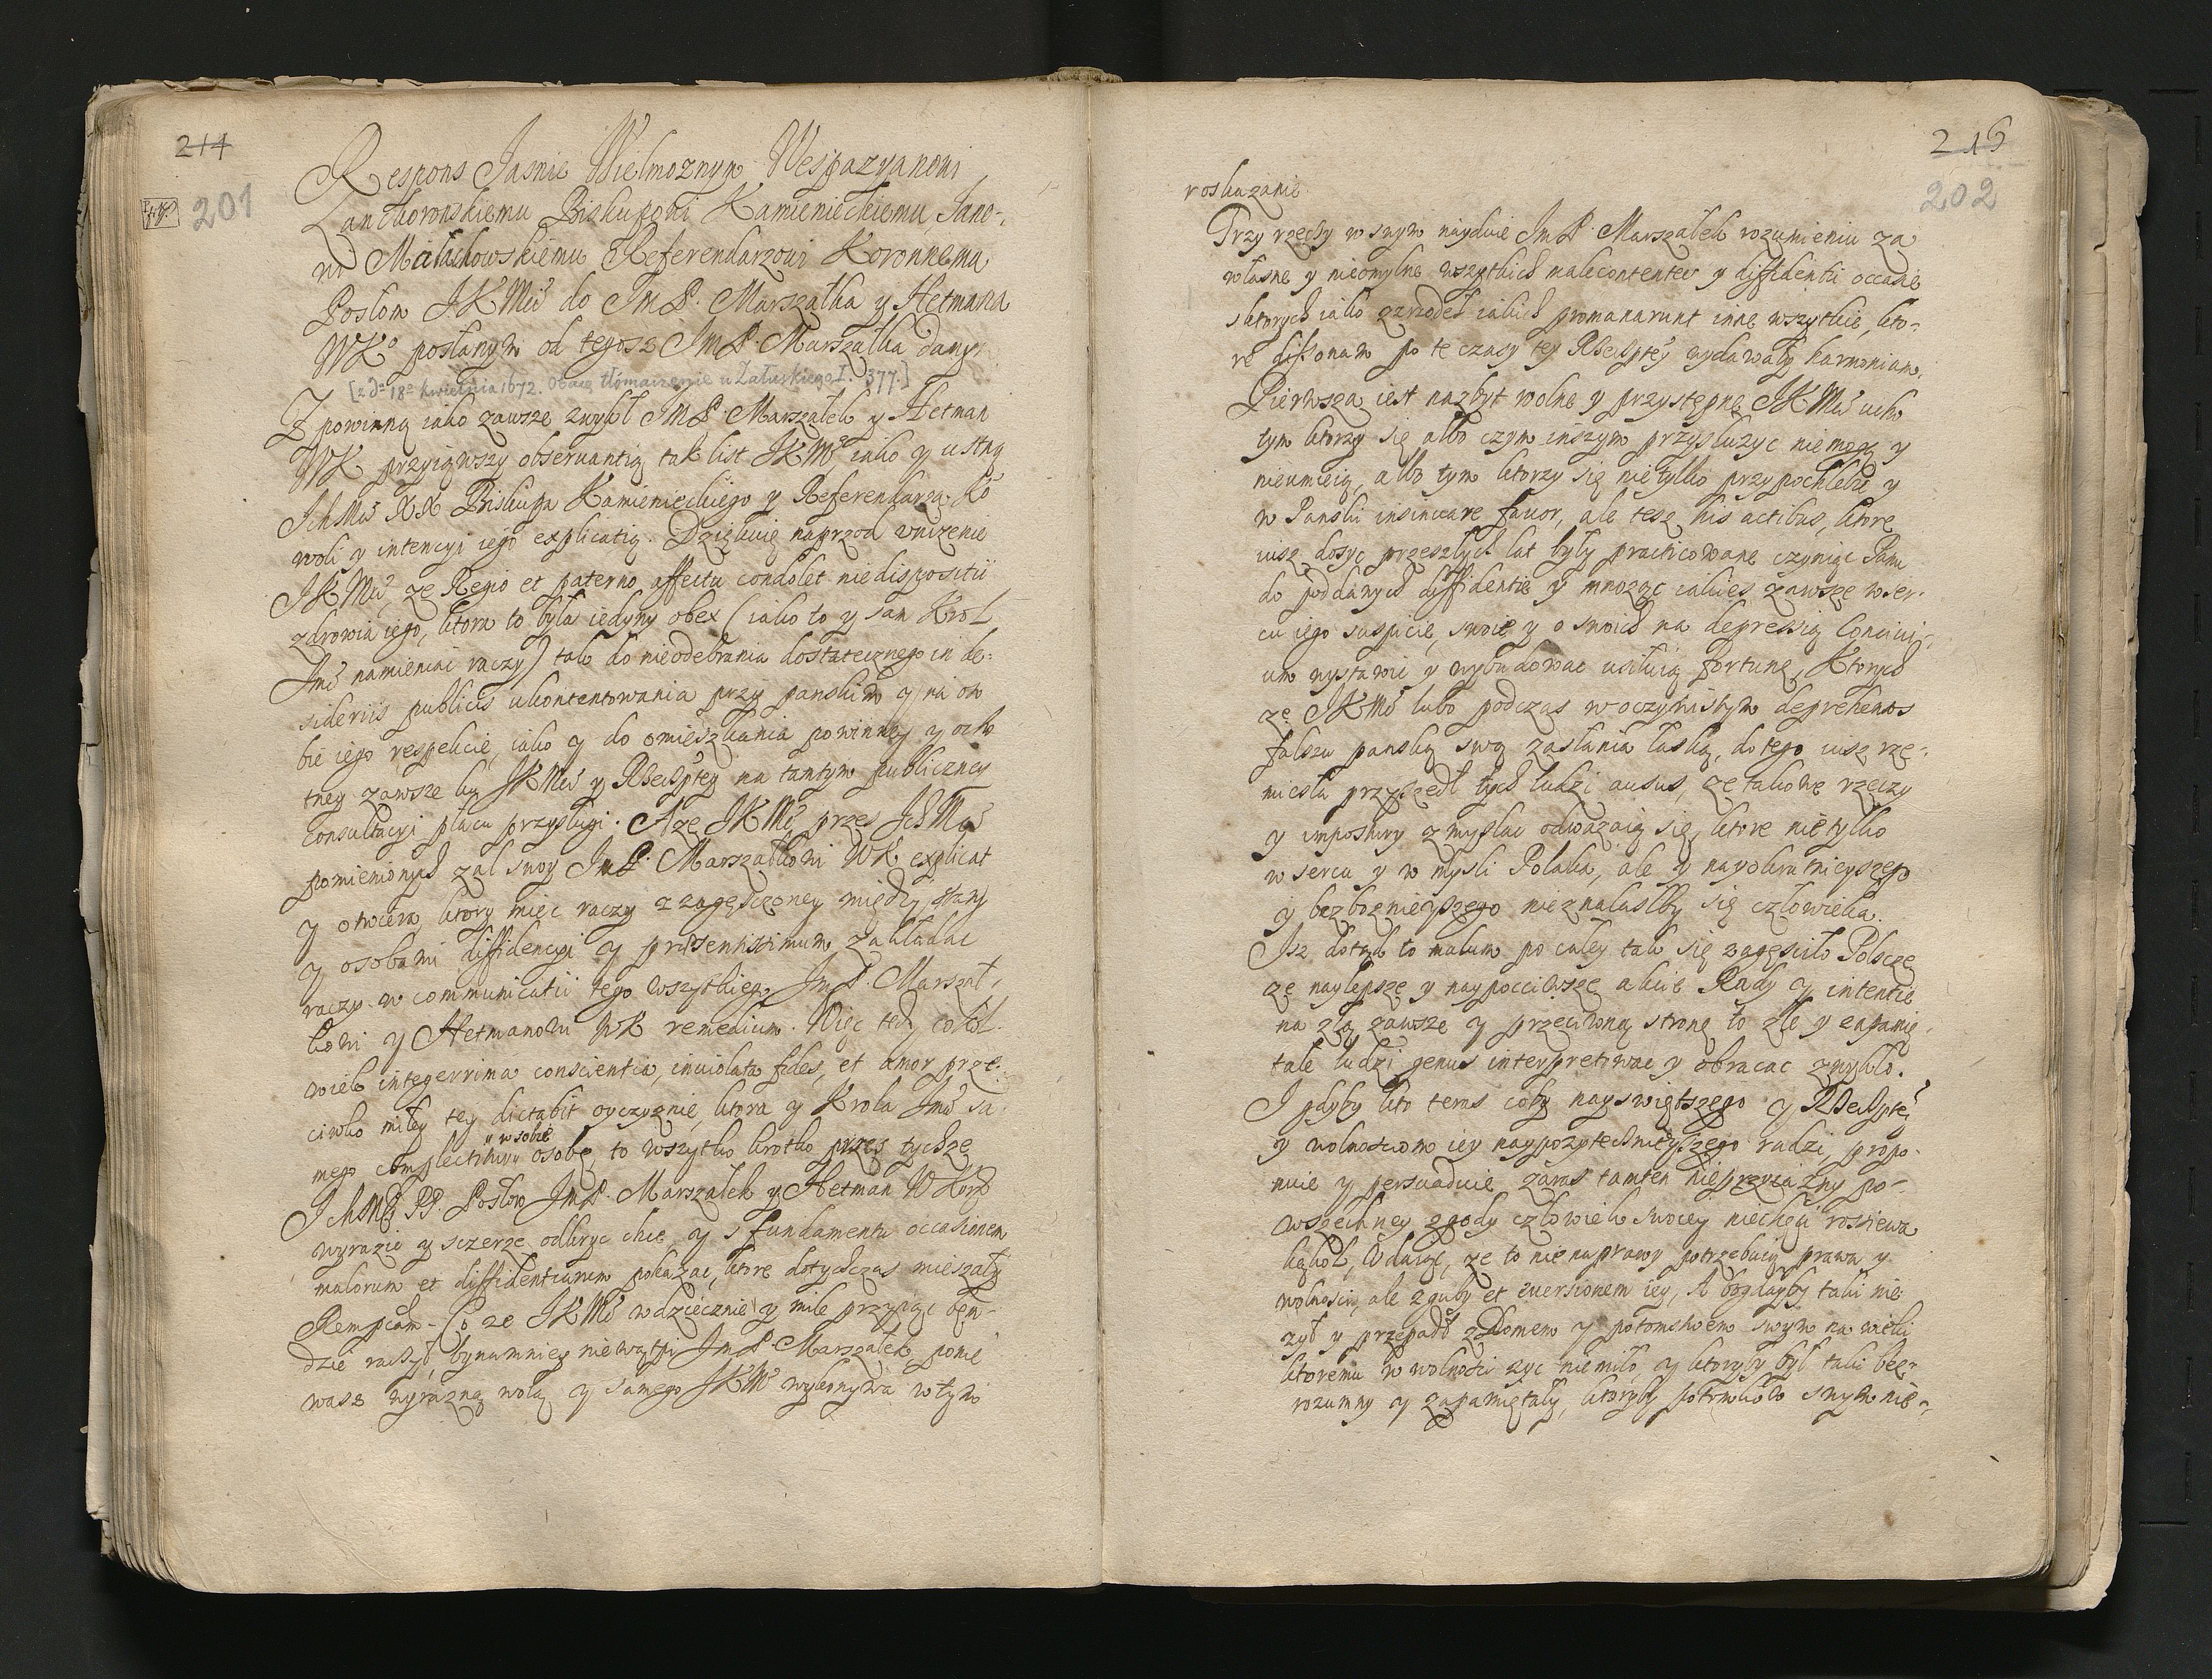 214
201
Respons Jasnie Wielmoznym Wespazyanowi
Lanckoronskiemu Biskupowi Kamienieckiemu, Jano-
wi Małachowskiemu Referendarzowi Koronnemu
Posłom JKMci do JmP. Marszałka y Hetmana
WKo posłanym od tegosz JmP. Marszałka dany
[z d. 18o kwietnia 1672. Obacz tłómaczenie u Załuskiego I. 377.]
Z powinną iako zawsze zwykł JmP. Marszałek y Hetman
WK przyiąwszy obserwantią tak list JKMci, iako y ustną
IchMci XX Biskupa Kamienieckiego y Referendarza Ko
woli y intencyi iego explicatią. Dziękuię naprzod unizenie
JKMci, ze Regio et paterno affectu condolet niedispositii
zdrowia iego, ktora to była iedyny obex (iako to y sam Krol
Jmc namieniac raczy) tak do nieodebrania dostatecznego in de-
sideriis publicis ukontentowania przy panskim y na oso
bie iego respekcie, iako y do omieszkania powinney y ocho
tney zawsze ku JKMci y RzeczPtey na tantym publiczney
consultacyi placu przysługi. A ze JKMc przes IchMciow
pomienionych zal swoy JmP. Marszałkowi WK explicat
y otwiera, ktory miec raczy z zagęsczoney między stany
y osobami diffidencyi y praesentissimum zakładac
raczy w communicatii tego wszytkiego JmP. Marszał-
kowi y Hetmanowi WK remedium. Więc tedy cokol-
wiek integerrima conscientia, inuiolata fides, et amor prze-
ciwko miłey tey dictabit oyczyznie, ktora y Krola Jmci sa-
mego complectitur w sobie osobę, to wszytko krotko przez tychze
IchMciow PP. Posłow JmP. Marszałek y Hetman WKor.
wyrazic y sczerze odkryc chce, y s fundamentu occasionem
malorum et diffidentiarum pokazac, ktore dotychczas mieszały
Rempcam. Co ze JKMc wdziecznie y mile przyiąc bęn-
dzie raczył, bynamniey niewątpi JmP. Marszałek, ponie
wasz wyrazną wolą y samego JKMci wykonywa w tym
216
202
roskazanie.
Przy rzeczy w swym nayduie JmP. Marszałek rozumieniu za
własne y nieomylne wszytkich malecontentec y diffidentii occasie
s ktorych iako zrzodeł iakich promanarunt inne wszytkie, kto-
re dissonam po te czasy tey RzeczPtey wydawały harmoniam.
Pierwsza iest nazbyt wolne y przystępne JKMci ucho
tym ktorzy się albo czym inszym przysłuzyc niemogą y
nieumieią, albo tym ktorzy się nietylko przypochlebic y
w Panski insinuare fauor, ale tesz his actibus, ktore
iusz dosyc przeszłych lat były practicowane czyniąc Panu
do poddanych diffidentie y mnoząc iakies zawsze w ser-
cu iego suspicie, swoie y o swoich na depressią Conciui-
um wystawic y wybudowac usiłuią fortunę, Ktorych
ze JKMc lubo podczas w oczywistym deprehensos
falszu panską swą zasłania łaską, do tego iusz rze-
miesła przyszedł tych ludzi ausus, ze takowe rzeczy
y impostury zmyslac odwazaią się, ktore nie tylko
w sercu y w mysli Polaka, ale y nayokrutnieyszego
y bezboznieyszego nieznalasłby się człowieka.
Isz dotąd to malum po całey tak się zagęsciło Polscze
ze naylepsze y naypocciwsze akcie Rady y intentie
na złą zawsze y przeciwną stronę to złe y
tale ludzi genus interpretowac y obracac zwykło.
I gdyby kto teras coby nayswiętszego y RzeczPtey
y wolnosciom iey naypozytecznieyszego radzi, propo-
nuie y persuaduie zaras tamten nieprzyiazny po-
wszechney zgody człowiek swoiey niechęci rosiewa
kąkol, Udaiąc, ze to nie naprawy potrzebuią prawa y
wolnosci, ale zguby et euersionem iey, A bogdayby taki nie
zył y przepadł z Domem y potomstwem swym na wieki
ktoremu w wolnosci zyc niemiło, y ktoryby był taki bez-
rozumny y zapamiętały, ktoryby potomkow swym nie-